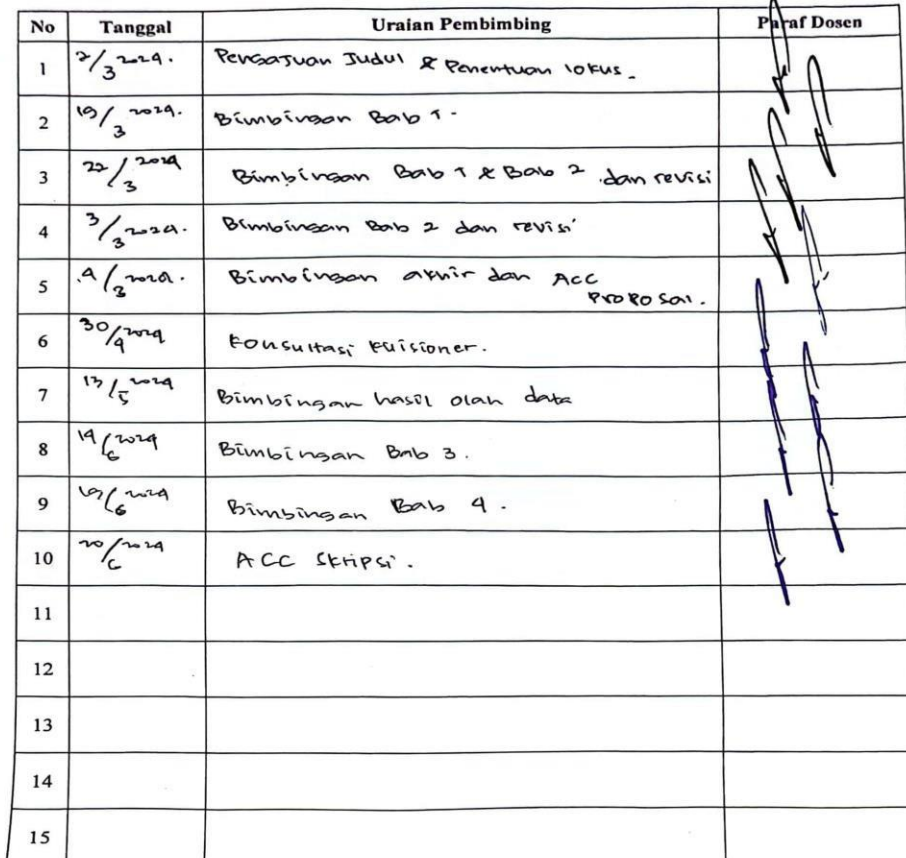 No Tanggal Uraian Pembimbing Paraf Dosen
1 2/3 2024. Pengajuan Judul & Penentuan lokus.
2 19/3 2024. Bimbingan Bab 1.
3 22/3 2024 Bimbingan Bab 1 & Bab 2 dan revisi
4 3/3 2024. Bimbingan Bab 2 dan revisi
5 4/3 2024. Bimbingan akhir dan Acc
Proposal.
6 30/4 2024 Konsultasi Kuisioner.
7 13/5 2024 Bimbingan hasil olah data
8 14/6 2024 Bimbingan Bab 3.
9 19/6 2024 Bimbingan Bab 4.
10 20/6 2024 ACC Skripsi.
11
12
13
14
15